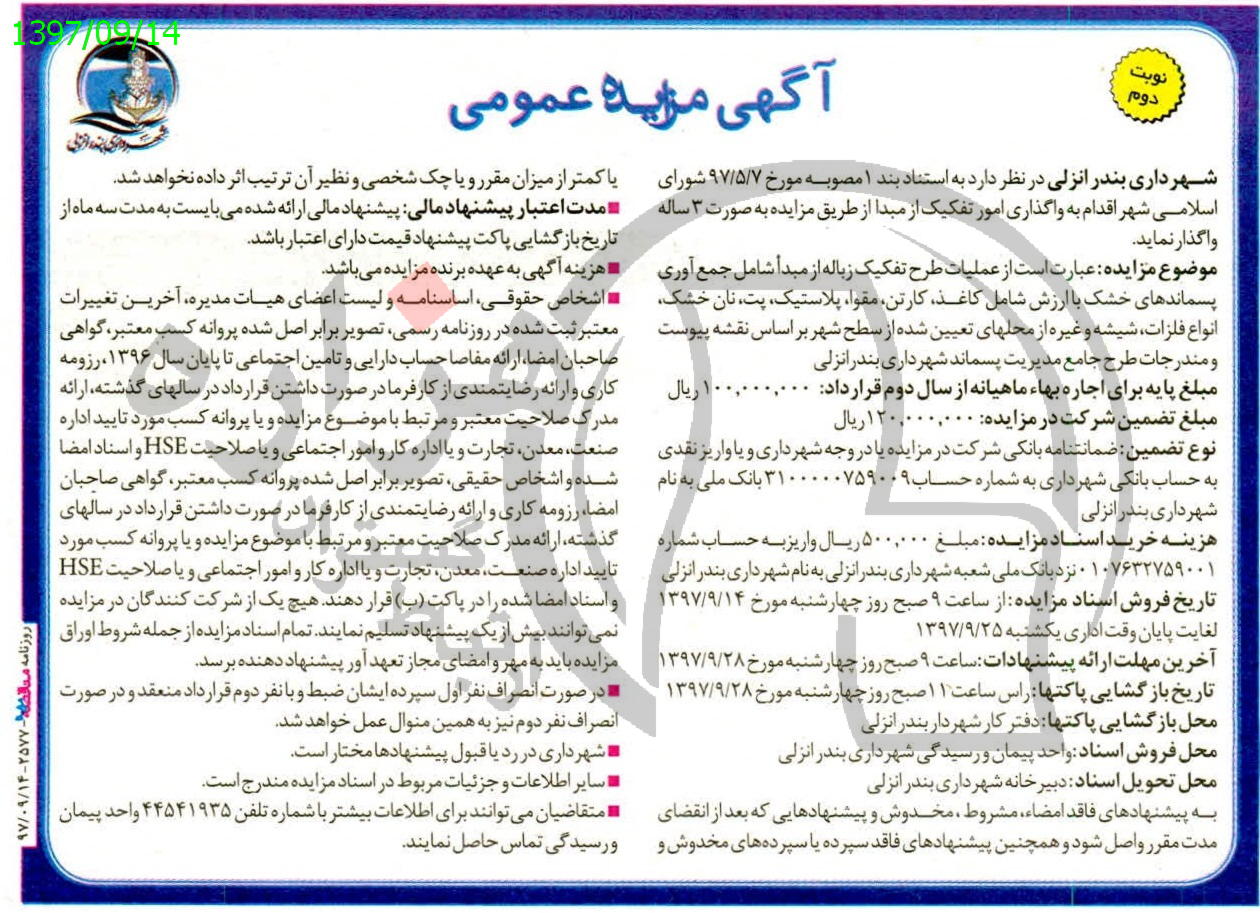 1397/09/14
شهرداری بندر انزلی
آگهی مزایده عمومی
نوبت
دوم
شــهرداری بندر انزلی در نظر دارد به استناد بند ۱ مصوبـه مورخ ۹۷/۵/۷ شورای
اسلامـی شهر اقدام به واگذاری امور تفکیک از مبدا از طریق مزایده به صورت ۳ ساله
واگذار نماید.
موضوع مزایده: عبارت است از عملیات طرح تفکیک زباله از مبدأ شامل جمع آوری
پسماندهای خشک با ارزش شامل کاغـذ، کارتن، مقوا، پلاستیک، پت، نان خشک،
انواع فلزات، شیشه و غیره از محلهای تعیین شده از سطح شهر بر اساس نقشه پیوست
و مندرجات طرح جامع مدیریت پسماند شهرداری بندرانزلی
مبلغ پایه برای اجاره بهاء ماهیانه از سال دوم قرارداد: ۱۰۰,۰۰۰,۰۰۰ ریال
مبلغ تضمین شرکت در مزایده: ۱۲۰,۰۰۰,۰۰۰ریال
نوع تضمین: ضمانتنامه بانکی شرکت در مزایده یا در وجه شهرداری و یا واریز نقدی
به حساب بانکی شهرداری به شماره حسـاب ۳۱۰۰۰۰۰۷۵۹۰۰۹ بانک ملی به نام
شهرداری بندر انزلی
هزینـه خریـد اسـناد مزایـده: مبلـغ ۵۰۰,۰۰۰ ریـال واریز بـه حسـاب شماره
۰۱۰۷۶۳۲۷۵۹۰۰۱ نزد بانک ملی شعبه شهرداری بندر انزلی به نام شهرداری بندر انزلی
تاریخ فروش اسناد مزایده: از ساعت ۹ صبح روز چهارشنبه مورخ ۱۳۹۷/۹/۱۴
لغایت پایان وقت اداری یکشنبه ۱۳۹۷/۹/۲۵
آخرین مهلت ارائه پیشنهادات: ساعت ۹ صبح روز چهارشنبه مورخ ۱۳۹۷/۹/۲۸
تاریخ بازگشایی پاکتها: راس ساعت ۱۱ صبح روز چهارشنبه مورخ ۱۳۹۷/۹/۲۸
محل بازگشایی پاکتها: دفتر کار شهردار بندر انزلی
محل فروش اسناد: واحد پیمان و رسیدگی شهرداری بندر انزلی
محل تحویل اسناد: دبیرخانه شهرداری بندر انزلی
بـه پیشنهادهای فاقد امضاء، مشروط، مخـدوش و پیشنهادهایی که بعد از انقضای
مدت مقرر واصل شود و همچنین پیشنهادهای فاقد سپرده یا سپرده‌های مخدوش و
یا کمتر از میزان مقرر و یا چک شخصی و نظیر آن ترتیب اثر داده نخواهد شد.
■ مدت اعتبار پیشنهاد مالی: پیشنهاد مالی ارائه شده می‌بایست به مدت سه ماه از
تاریخ بازگشایی پاکت پیشنهاد قیمت دارای اعتبار باشد.
■ هزینه آگهی به عهده برنده مزایده می‌باشد.
■ اشخاص حقوقـی، اساسنامـه و لیست اعضای هیـات مدیره، آخریـن تغییرات
معتبر ثبت شده در روزنامه رسمی، تصویر برابر اصل شده پروانه کسب معتبر، گواهی
صاحبان امضا، ارائه مفاصا حساب دارایی و تامین اجتماعی تا پایان سال ۱۳۹۶، رزومه
کاری و ارائه رضایتمندی از کارفرما در صورت داشتن قرارداد در سالهای گذشته، ارائه
مدرک صلاحیت معتبر و مرتبط با موضـوع مزایده و یا پروانه کسب مورد تایید اداره
صنعت، معدن، تجارت و یا اداره کار و امور اجتماعی و یا صلاحیت HSE و اسناد امضا
شـده و اشخاص حقیقی، تصویر برابر اصل شده پروانه کسب معتبر، گواهی صاحبان
امضا، رزومه کاری و ارائه رضایتمندی از کارفرما در صورت داشتن قرارداد در سالهای
گذشته، ارائه مدرک صلاحیت معتبر و مرتبط با موضوع مزایده و یا پروانه کسب مورد
تایید اداره صنعـت، معدن، تجارت و یا اداره کار و امور اجتماعی و یا صلاحیت HSE
و اسناد امضا شده را در پاکت (ب) قرار دهند. هیچ یک از شرکت کنندگان در مزایده
نمی توانند بیش از یک پیشنهاد تسلیم نمایند. تمام اسناد مزایده از جمله شروط اوراق
مزایده باید به مهر و امضای مجاز تعهد آور پیشنهاد دهنده برسد.
■ در صورت انصراف نفر اول سپرده ایشان ضبط و با نفر دوم قرارداد منعقد و در صورت
انصراف نفر دوم نیز به همین منوال عمل خواهد شد.
■ شهرداری در رد یا قبول پیشنهادها مختار است.
■ سایر اطلاعات و جزئیات مربوط در اسناد مزایده مندرج است.
■ متقاضیان می توانند برای اطلاعات بیشتر با شماره تلفن ۴۴۵۴۱۹۳۵ واحد پیمان
و رسیدگی تماس حاصل نمایند.
روزنامه مناقصه -۲۵۷۷-۹۷/۰۹/۱۴
هزاره